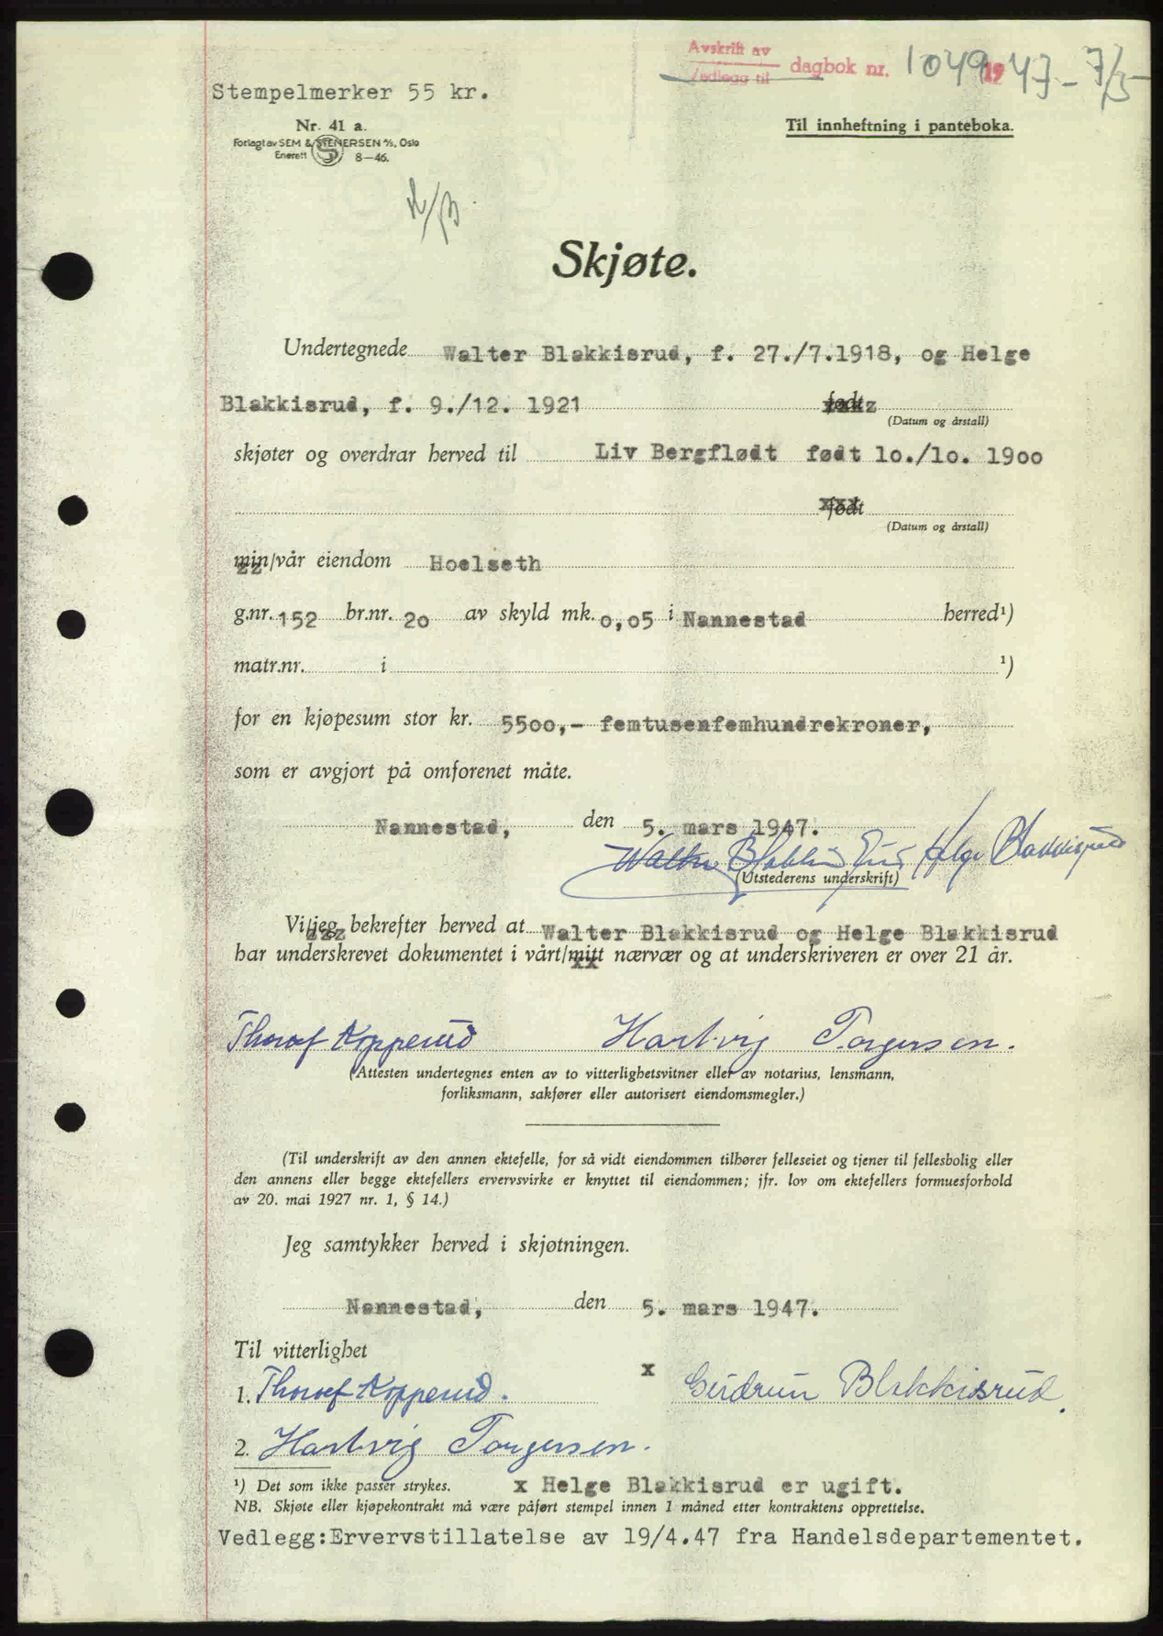 Avskrift av
Vedlegg til dagbok nr. 1049 1947 - 7/5 -
Stempelmerker 55 kr.
Nr. 41 a.
Forlagt av SEM & STENERSEN A/S, Oslo
Enerett S 8—46.
Til innheftning i panteboka.
Skjøte.
Undertegnede Walter Blakkisrud, f. 27./7.1918, og Helge
Blakkisrud, f. 9./12. 1921 født
(Datum og årstall)
skjøter og overdrar herved til Liv Bergflødt født 1o./1o. 19oo
født
(Datum og årstall)
min/vår eiendom Hoelseth
g.nr. 152 br.nr. 2o av skyld mk. o,o5 i Nannestad herred¹)
matr.nr. i ¹)
for en kjøpesum stor kr. 55oo,- femtusenfemhundrekroner,
som er avgjort på omforenet måte.
Nannestad, den 5. mars 1947.
Walter Blakkisrud Helge Blakkisrud
(Utstederens underskrift)
Vi/jeg bekrefter herved at Walter Blakkisrud og Helge Blakkisrud
har underskrevet dokumentet i vårt/mitt nærvær og at underskriveren er over 21 år.
Thoralf Kopperud Hartvig Torgersen.
(Attesten undertegnes enten av to vitterlighetsvitner eller av notarius, lensmann,
forliksmann, sakfører eller autorisert eiendomsmegler.)
(Til underskrift av den annen ektefelle, for så vidt eiendommen tilhører felleseiet og tjener til fellesbolig eller
den annens eller begge ektefellers ervervsvirke er knyttet til eiendommen; jfr. lov om ektefellers formuesforhold
av 20. mai 1927 nr. 1, § 14.)
Jeg samtykker herved i skjøtningen.
Nannestad, den 5. mars 1947.
Til vitterlighet
1. Thoralf Kopperud. x Gudrun Blakkisrud.
2. Hartvig Torgersen.
¹) Det som ikke passer strykes. x Helge Blakkisrud er ugift.
NB. Skjøte eller kjøpekontrakt må være påført stempel innen 1 måned etter kontraktens opprettelse.
Vedlegg:Ervervstillatelse av 19/4.47 fra Handelsdepartementet.